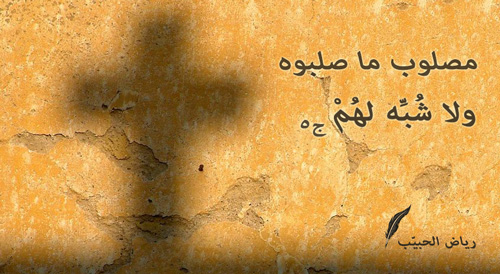 مصلوب ما صلبوه
ولا شُبِّه لهُمْ ج٥
رياض الحبيّب